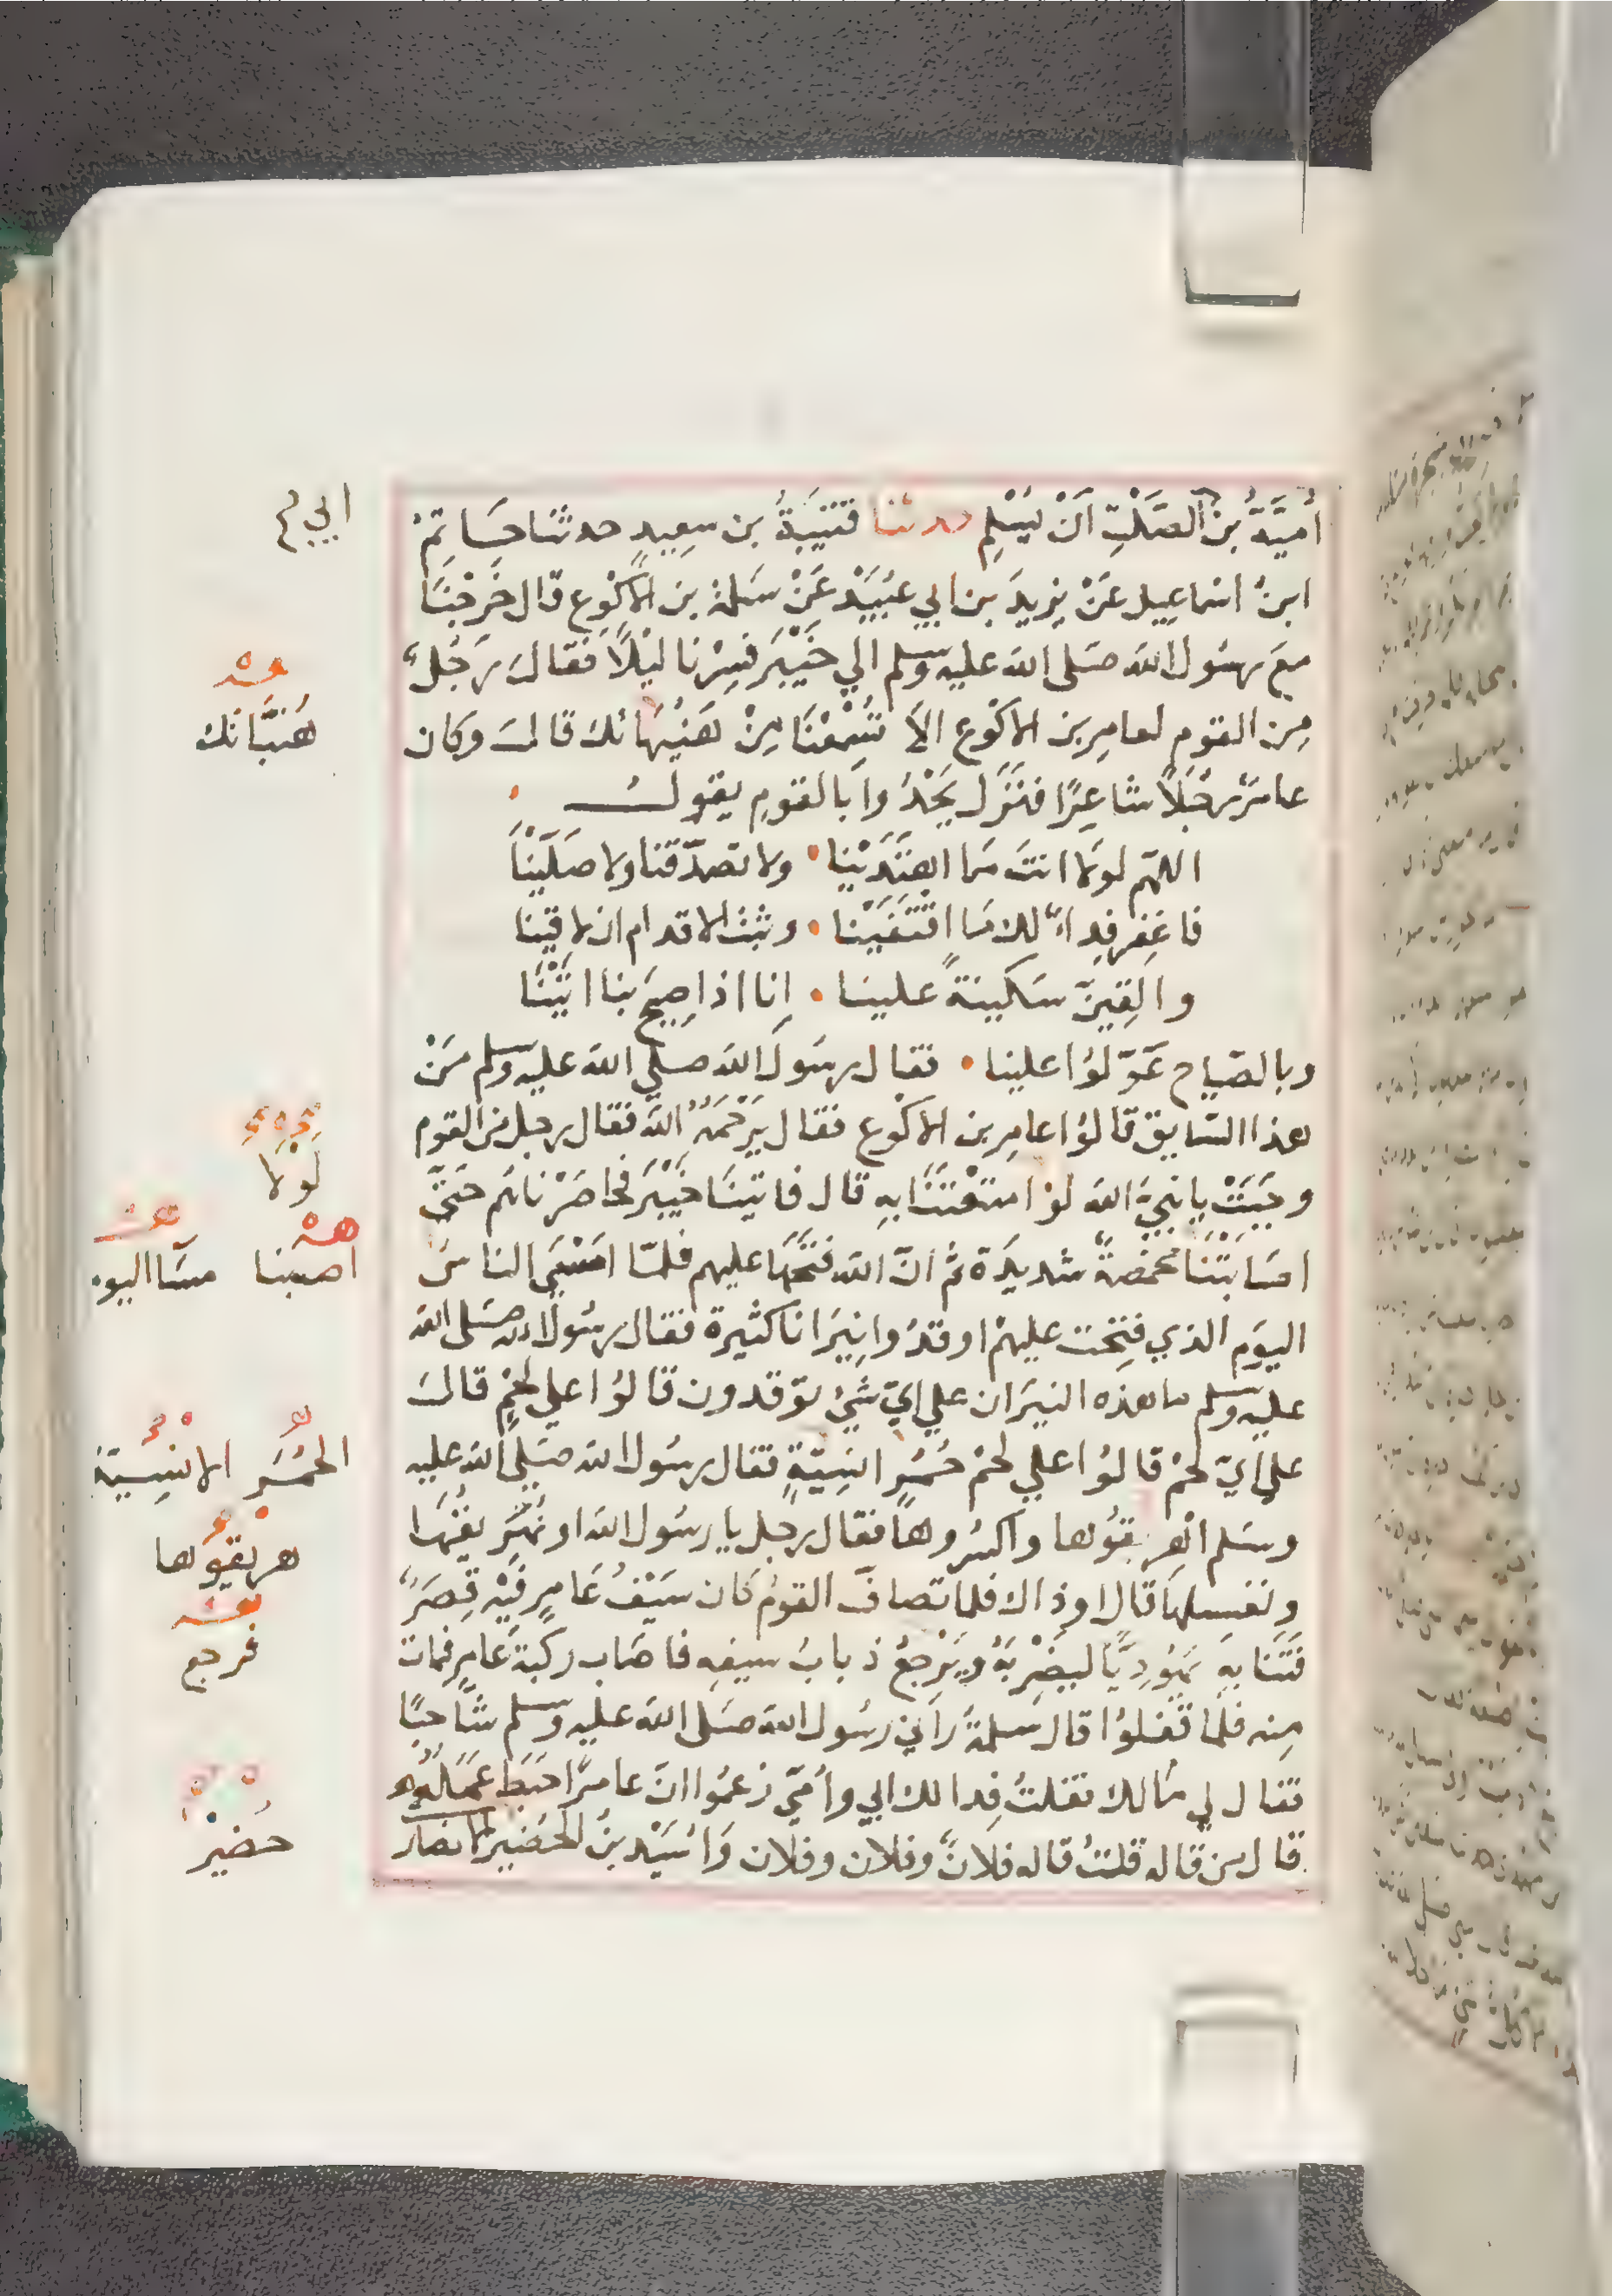 أُمَيَّةُ بن الصَّلْتِ اَنْ يُسْلِمِ حدثنا قُتَيْبَةُ بن سعِيدٍ حدثنا حَاتِمُ
ابنُ اسْماعِيل عَنْ يزيدَ بن ابي عُبَيْدٍ عَنْ سَلمة بن الاكْوع قال خَرَجْنَا
معَ رسُول الله صَلى الله عليه وسلم الي خَيْبَر فسِرْنا ليْلاً فقالَ رَجُلٌ
مِن القوم لعامِر بن الاكْوع الاَ تُسْمِعُنَا مِنْ هُنَيْهَاتك قالَ وكان
عامرٌ رَجُلاً شاعِرًا فنَزَل يَحْدُوا بالقومِ يقول
اللهّم لولا انتَ مَا اهتَدَيْنا ولا تصدّقنا ولا صَلّيْنَا
فاغفر فِداءً لك مَا اقتَفَيْنا وثبت الاقدام ان لاقيْنا
والقِيَنّ سَكينةً علينا اِنا اذا صِيحَ بنا اتَيْنَا
وبالصّياح عَوّلوُا علينا فقال رسَول الله صلي الله عليه وسلم مَنْ
هذا السّايق قالوُا عامِر بن الاكوع فقال يَرْحَمُهُ الله فقال رجل من القوم
وجَبَتْ يا نبيَّ الله لوْ امتعْتنَا بهِ قال فاتينَا خَيْبَر فحاصَرْناهُم حَتيّ
اصَابتْنَا مخمَصةٌ شديدَة ثم انّ الله فتحَهَا عليهم فلمّا امْسَي الناسُ
اليوَم الذي فُتِحَت عليهمْ اوقدُوا نِيرَانا كثيرة فقال رسُول الله صَلى الله
عليه وسلم ما هذه النيَران علي ايّ شيْ توقدون قالوُا علي لحْمٍ قالَ
علي ايّ لحمْ قالوُا علي لحمْ حُمُرٍ انسِيّةٍ فقال رسُول الله صَلي الله عليه
وسَلم اهْريقوُها واكسُروها فقال رجل يا رسُول الله او نُهَريقُهَا
ونغسِلهَا قال او ذاك فلما تصافّ القومُ كان سَيْفُ عَامرٍ فيْهِ قِصَرٌ
فتَنَا به يَهُودِيًّا ليَضْرِبَهُ ويَرْجعُ ذبابُ سيفهِ فاصَاب ركبة عَامرٍ فمات
مِنه فلما قفلوُا قال سَلمةُ رآني رسُول الله صَلى الله عليه وسلم شَاحبًا
فقال لي مَا لك فقلتُ فِدا لك ابي وأمّي زعَموُا انّ عامرًا حَبَط عَمَلُهُ
قال من قاله قلتُ قاله فلانٌ وفلان وفلان وَاُسَيْد بنُ الحضَير الانصَار
ابي
هُنَيَّاتك
لوْلا
اصَبنا
مسَآ اليوم
الحُمُرِ الانْسِيّة
هريقوُها
فرجع
حُضيْر